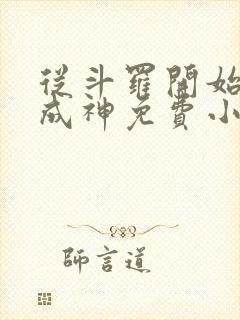 從斗羅開始
成神免費小
師言道